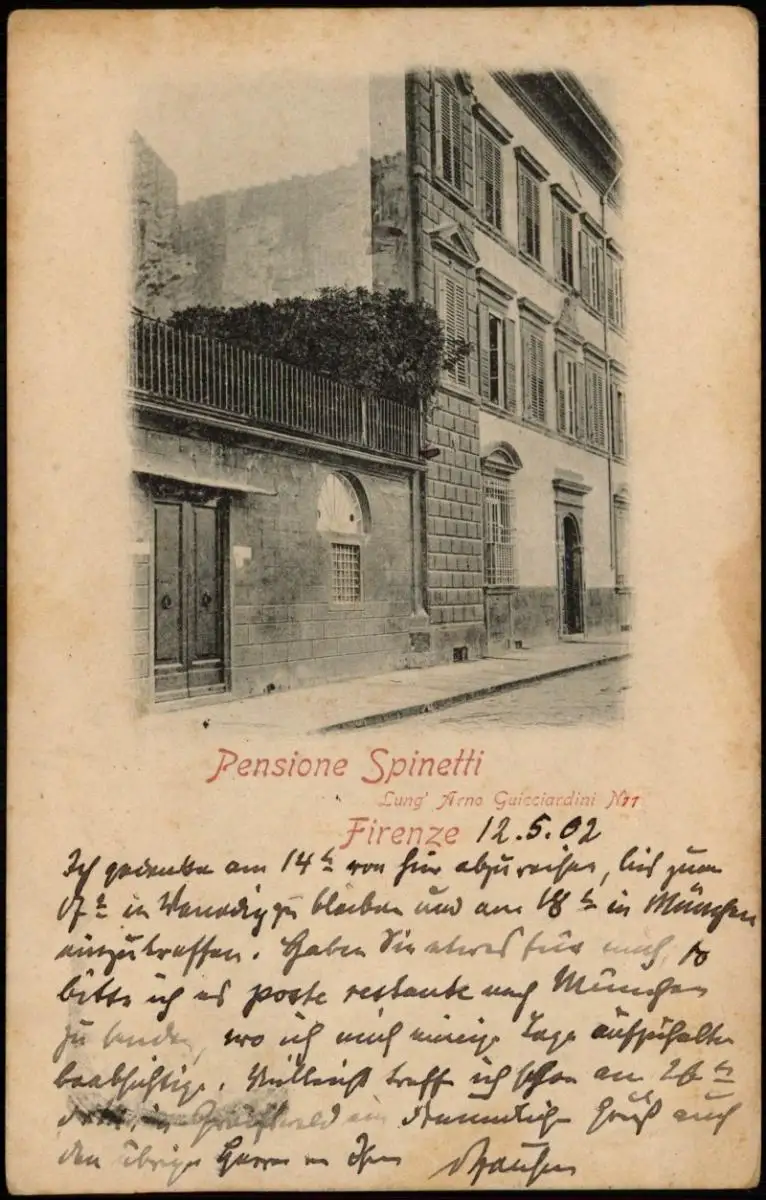 Pensione Spinetti
Lung' Arno Guicciardini N 11
Firenze 12.5.02
Ich gedenke am 14ten von hier abzureisen, bis zum
17ten in Venedig zu bleiben und am 18ten in München
einzutreffen. Haben Sie etwas für mich, so
bitte ich es poste restante nach München
zu senden, wo ich mich einige Tage aufzuhalten
beabsichtige. Vielleicht treffe ich schon am 26ten
in Greifswald ein. Freundlichen Gruß auch
den übrigen Herren